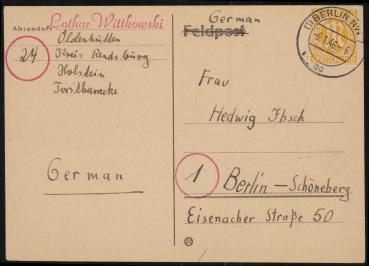 Lothar Wittkowski
Absender:
Oldenhütten
24
Kreis Rendsburg
Holstein
Torfbaracke
German
German
Feldpost
BERLIN NW 7
Frau
Hedwig Ibsch
1
Berlin-Schöneberg
Eisenacher Straße 50